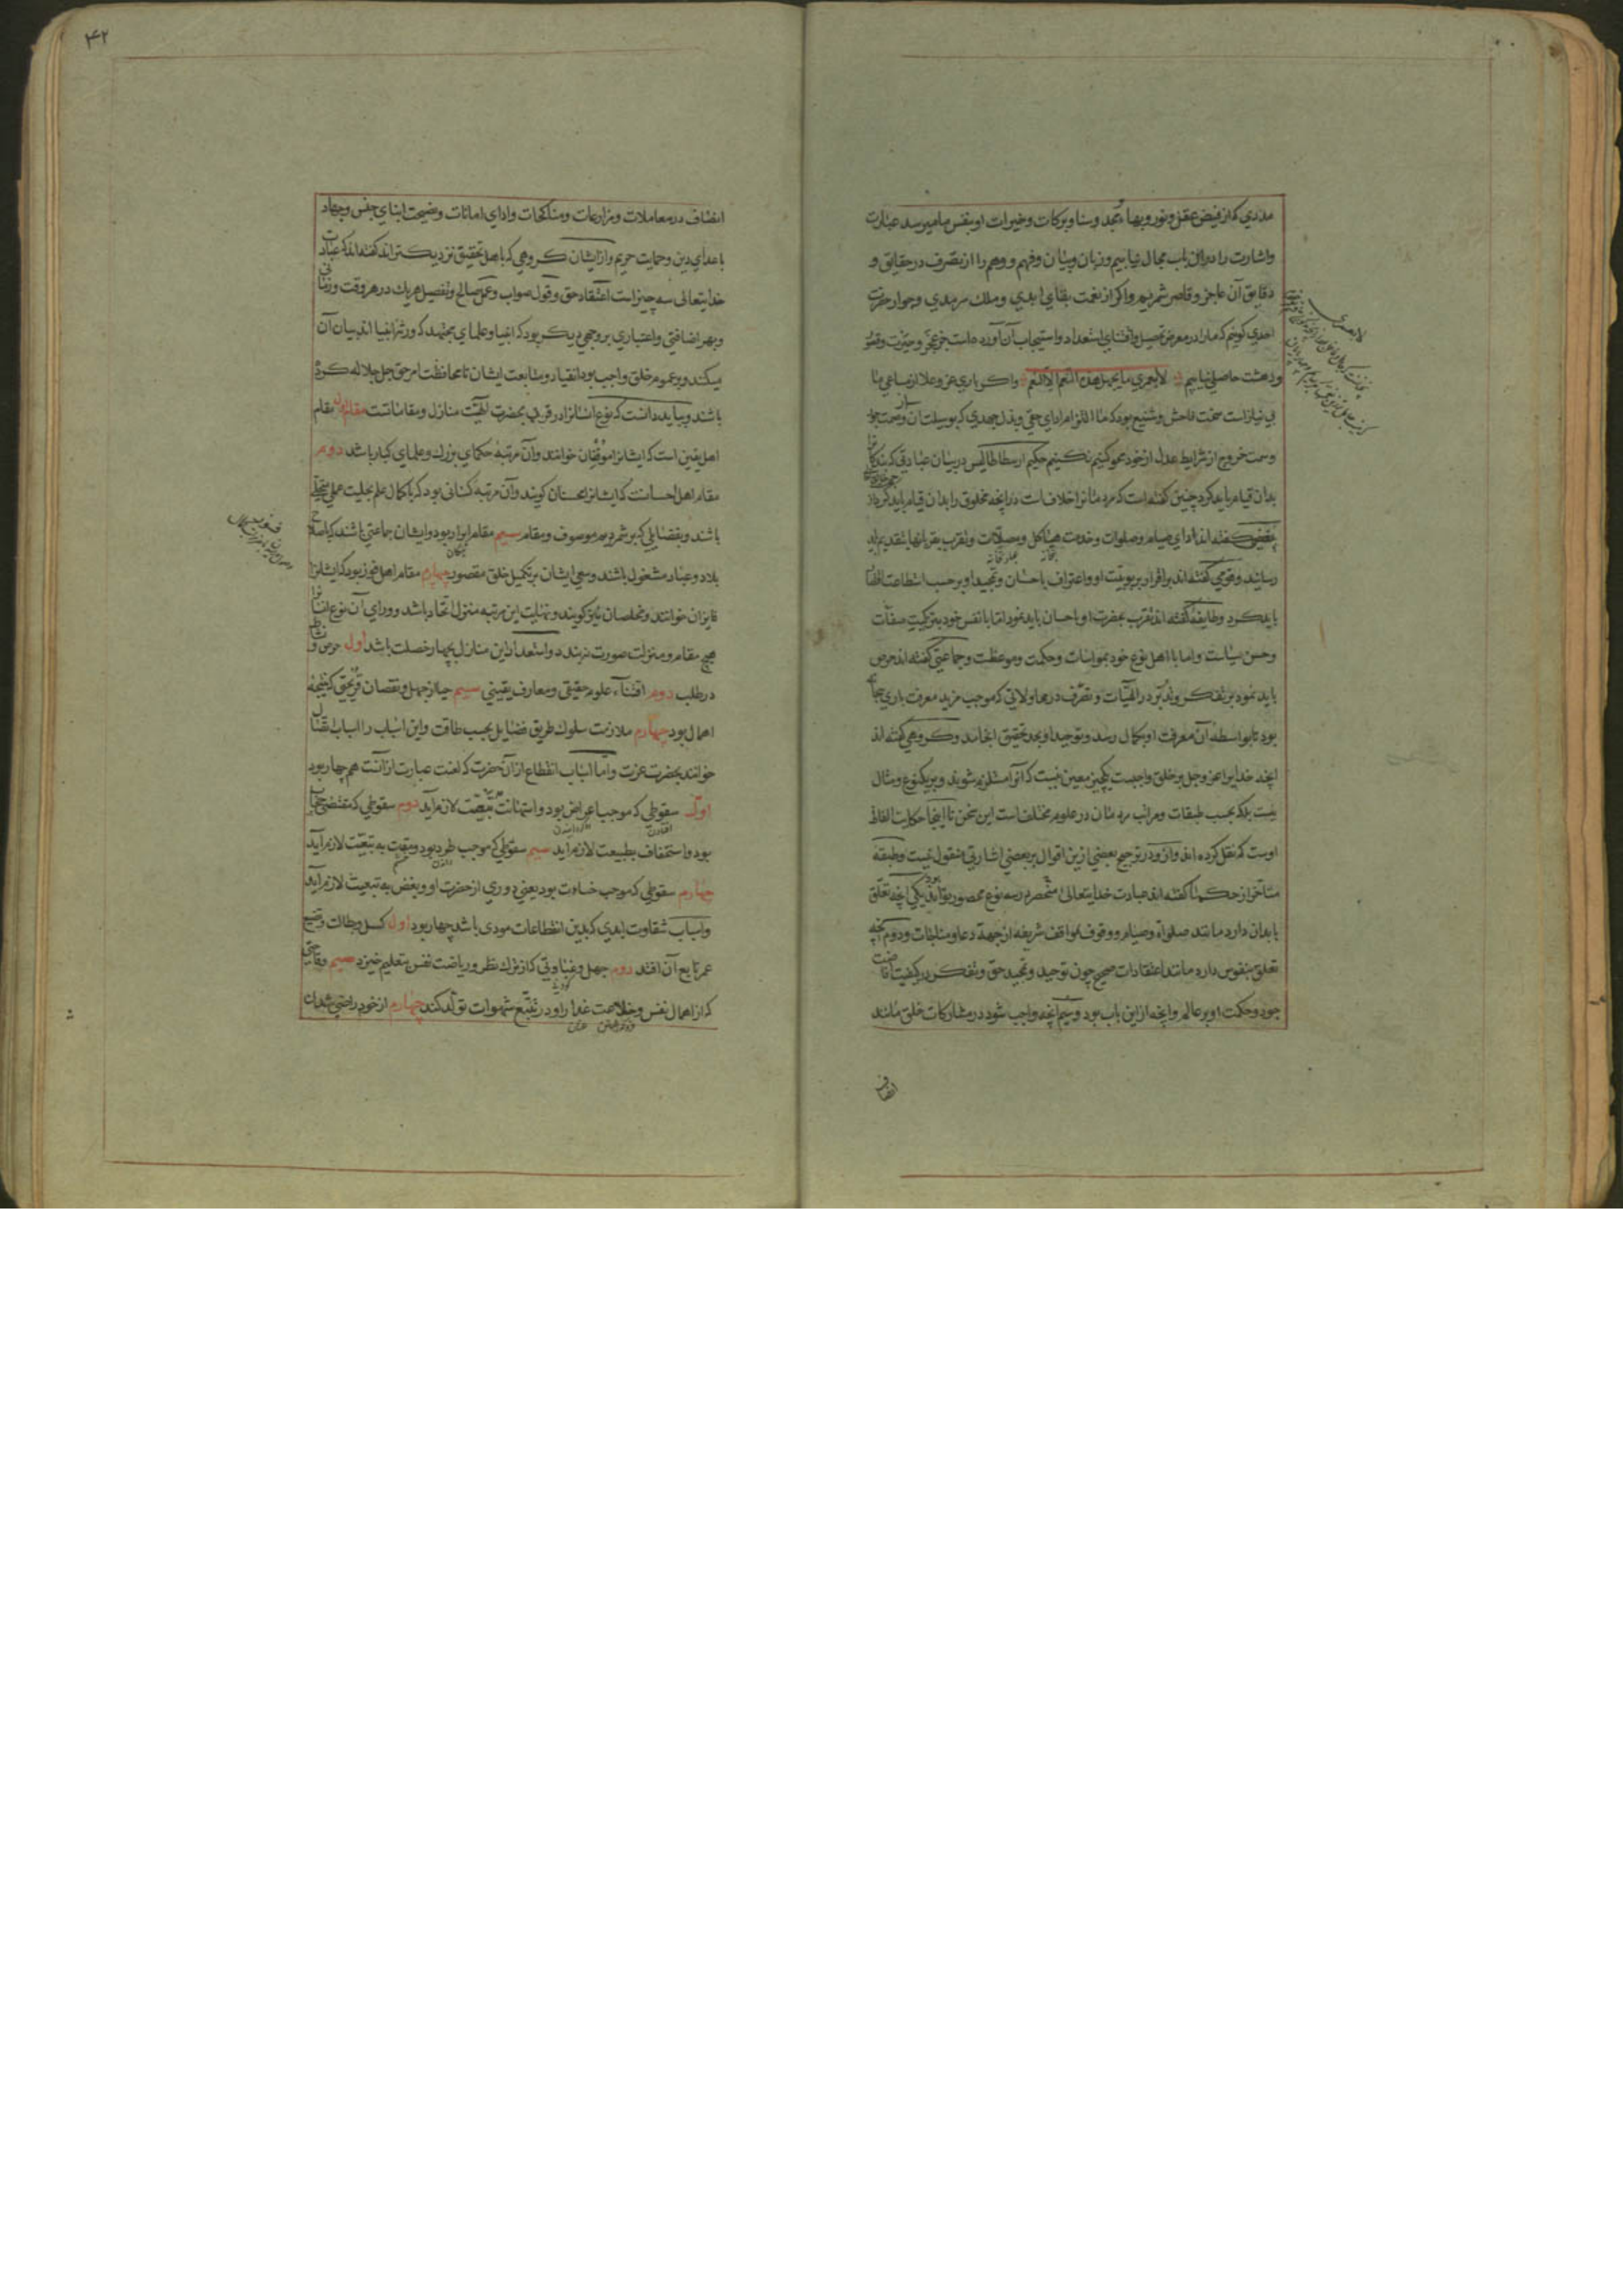 مددی که از فیض عقل و نور و بهاء و مجد و سنا و برکات و خیرات او بنفس ما میرسد عبارت
و اشارت را در آن باب مجال نیابیم و زبان و بیان و فهم و وهم را از تصرف در حقایق و
دقایق آن عاجز و قاصر شمریم و اگر از نعمت بقای ابدی و ملک سرمدی و جوار حضرت
احدی گوییم که ما را در معرض تحصیل و اقتنای استعداد و استیجاب آن آورده است جز عجز و حیرت و قصور
و دهشت حاصلی نیابیم لا لعمری ما یجهل هذه النعم الا النعم و اگر باری عز و علا از مساعی ما
بی نیاز است سخت فاحش و شنیع بود که ما التزام ادای حقی و بذل جهدی که بوسیلت آن وصمت جور
و سمت خروج از شرایط عدل از خود محو کنیم نکنیم حکیم ارسطاطالیس در بیان عبادتی که بندگان را
بدان قیام باید کرد چنین گفته است که مردمان را خلاف است در آنچه مخلوق را بدان قیام باید کرد از جهة خالق
بعضی گفته اند ادای صیام و صلوات و خدمت هیاکل و مصلّات و تقرب بقربانها بتقدیم باید
رسانید و قومی گفته اند بر اقرار بربوبیّت او و اعتراف باحسان و تمجید او بر حسب استطاعت اقتصار
باید کرد و طایفهٔ گفته اند تقرب بحضرت او باحسان باید نمود اما با نفس خود بتزکیت صفات
و حسن سیاست و اما با اهل نوع خود بمواسات و حکمت و موعظت و جماعتی گفته اند حرص
باید نمود بر تفکر و تدبّر در الهیّات و تصرّف در محاولاتی که موجب مزید معرفت باری سبحانه
بود تا بواسطهٔ آن معرفت او بکمال رسد و توحید او بحد تحقیق انجامد و گروهی گفته اند
آنچه خدایرا عز و جل بر خلق واجبست یکچیز معین نیست که آنرا مستلزم شوند و بر یکنوع و مثال
نیست بلکه بحسب طبقات و مراتب مردمان در علوم مختلف است این سخن تا اینجا حکایت الفاظ
اوست که نقل کرده اند و از و در ترجیح بعضی ازین اقوال بر بعضی اشارتی منقول نیست و طبقه
متأخر از حکما گفته اند عبادت خدایتعالی منحصر در سه نوع محصور تواند بود یکی آنچه تعلّق
بابدان دارد مانند صلواة و صیام و وقوف بمواقف شریفه از جهة دعا و مناجات و دوم آنچه
تعلق بنفوس دارد مانند اعتقادات صحیح چون توحید و تمجید حق و تفکر در کیفیت افاضت
جود و حکمت او بر عالم و آنچه ازین باب بود و سیم آنچه واجب شود در مشارکات خلق مانند
انصاف
٤٢
انصاف در معاملات و مزارعات و مناکحات و ادای امانات و نصیحت ابنای جنس و جهاد
با اعدای دین و حمایت حریم و از ایشان گروهی که باهل تحقیق نزدیکتراند گفته اند که عبادت
خدایتعالی سه چیز است اعتقاد حق و قول صواب و عمل صالح و تفصیل هریک در هر وقت و زمانی
و بهر اضافتی و اعتباری بر وجهی دیگر بود که انبیا و علمای مجتهد که ورثهٔ انبیا اند بیان آن
میکنند و بر عموم خلق واجب بود انقیاد و متابعت ایشان تا محافظت امر حق جل جلاله کرده
باشند و بباید دانست که نوع انسانرا در قرب بحضرت الهیّت منازل و مقاماتست مقام اول مقام
اهل یقین است که ایشانرا موقنان خوانند و آن مرتبهٔ حکمای بزرگ و علمای کبار باشد دوم
مقام اهل احسانست که ایشانرا محسنان گویند و آن مرتبه کسانی بود که با کمال علم بحلیت عمل متحلّی
باشند و بفضایلی که بر شمردیم موصوف و مقام سیم مقام ابرار بود و ایشان جماعتی باشند که باصلاح
بلاد و عباد مشغول باشند و سعی ایشان بر تکمیل خلق مقصور چهارم مقام اهل فوز بود که ایشانرا
فایزان خوانند و مخلصان نیز گویند و نهایت این مرتبه منزل اتحاد باشد و ورای آن نوع انسانرا
هیچ مقام و منزلت صورت نبندد و استعداد این منازل بچهار خصلت باشد اول حرص و نشاط
در طلب دوم اقتناء علوم حقیقی و معارف یقینی سیم حیا از جهل و نقصان قریحتی که نتیجهٔ
اهمال بود چهارم ملازمت سلوک طریق فضایل بحسب طاقت و این اسباب را اسباب اتصال
خوانند بحضرت عزت و اما اسباب انقطاع از آن حضرت که لعنت عبارت از آنست هم چهار بود
اول سقوطی که موجب اعراض بود و استهانت بتبعیّت لازم آید دوم سقوطی که مقتضی حجاب
بود و استخفاف بطبیعت لازم آید سیم سقوطی که موجب طرد بود و مقت به تبعیّت لازم آید
چهارم سقوطی که موجب خسائت بود یعنی دوری از حضرت او و بغض به تبعیت لازم آید
و اسباب شقاوت ابدی که بدین انقطاعات مودی باشد چهار بود اول کسل و بطالت و تضییع
عمر تابع آن افتد دوم جهل و غباوتی که از ترک نظر و ریاضت نفس بتعلیم خیزد سیم وقاحتی
که از اهمال نفس و خلاعت عذار او در تتبّع شهوات تولّد کند چهارم از خود راضی شدن